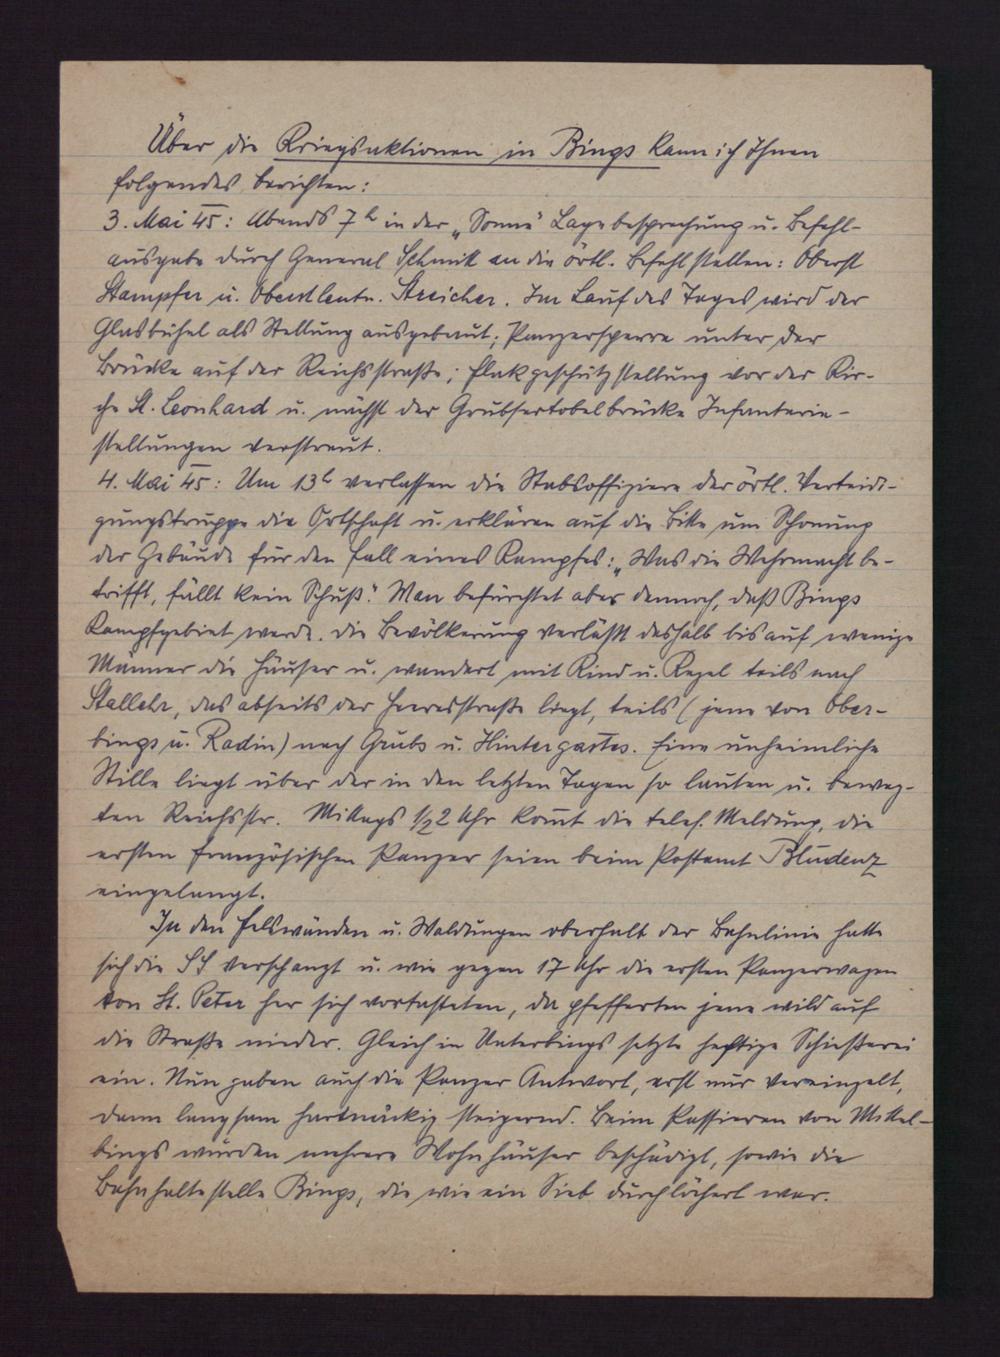 Über die Kriegsaktionen in Bings kann ich Ihnen
folgendes berichten:
3. Mai 45: Abends 7h in der „Sonne" Lagebesprechung u. Befehl-
ausgabe durch General Schmitt an die örtl. Befehlstellen: Oberst
Stampfer u. Oberstleutn. Streicher. Im Lauf des Tages wird der
Glasbühel als Stellung ausgebaut; Panzersperre unter der
Brücke auf der Reichsstraße; Flakgeschützstellung vor der Kir-
che St. Leonhard u. nächst der Grubsertobelbrücke Infanterie-
stellungen verstreut.
4. Mai 45: Um 13h verlassen die Stabsoffiziere der örtl. Verteidi-
gungstruppe die Ortschaft u. erklären auf die Bitte um Schonung
der Gebäude für den Fall eines Kampfes: „Was die Wehrmacht be-
trifft, fällt kein Schuß." Man befürchtet aber dennoch, daß Bings
Kampfgebiet werde. Die Bevölkerung verläßt deshalb bis auf wenige
Männer die Häuser u. wandert mit Kind u. Kegel teils nach
Stallehr, das abseits der Heeresstraße liegt, teils (jene von Ober-
bings u. Radin) nach Grubs u. Hintergastes. Eine unheimliche
Stille liegt über der in den letzten Tagen so lauten u. beweg-
ten Reichsstr. Mittags 1/2 2 Uhr kommt die telef. Meldung, die
ersten französischen Panzer seien beim Postamt Bludenz
eingelangt.
In den Felswänden u. Waldungen oberhalb der Bahnlinie hatte
sich die SS verschanzt u. wie gegen 17 Uhr die ersten Panzerwagen
von St. Peter her sich vortasteten, da pfefferten jene wild auf
die Straße nieder. Gleich in Unterbings setzte heftige Schießerei
ein. Nun gaben auch die Panzer Antwort, erst nur vereinzelt,
dann langsam hartnäckig steigernd. Beim Passieren von Mittel-
bings wurden mehrere Wohnhäuser beschädigt, sowie die
Bahnhaltestelle Bings, die wie ein Sieb durchlöchert war.